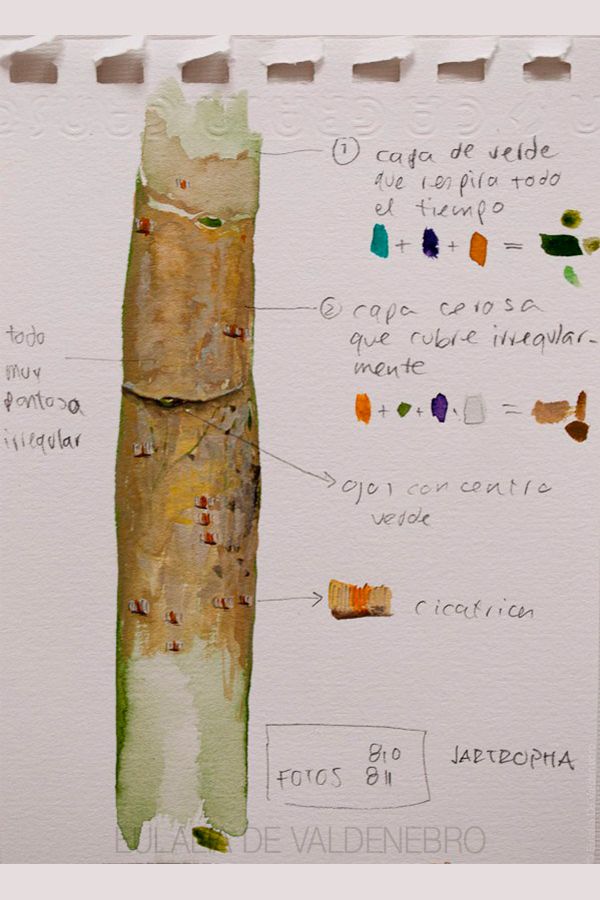 ① capa de verde
que respira todo
el tiempo
+ + =
② capa cerosa
que cubre irregular-
mente
+ + + =
todo
muy
pantosa
irregular
ojos con centro
verde
cicatrices
FOTOS 810
811
JARTROPHA
EULALIA DE VALDENEBRO